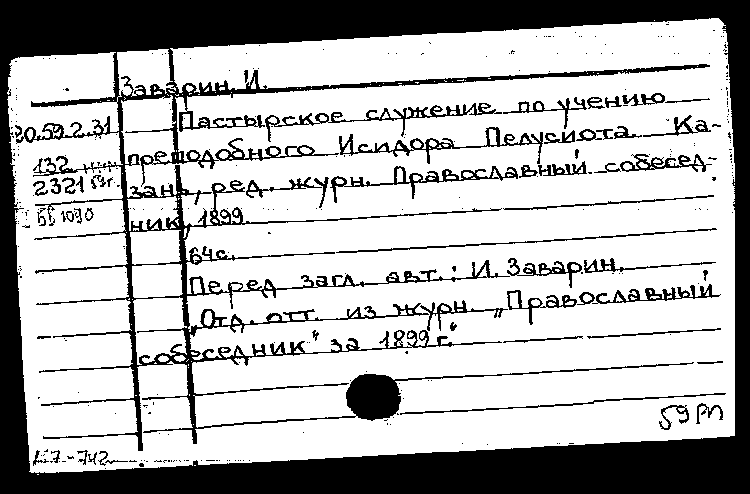 Заварин, И.
20.59.2.31
Пастырское служение по учению
132
преподобного Исидора Пелусиота. Ка-
2321 59г.
зань, ред. журн. Православный собесед-
ББ 1090
ник, 1899.
64с.
Перед загл. авт.: И. Заварин.
„Отд. отт. из журн. „Православный
собеседник“ за 1899 г.“
59 РП
-742